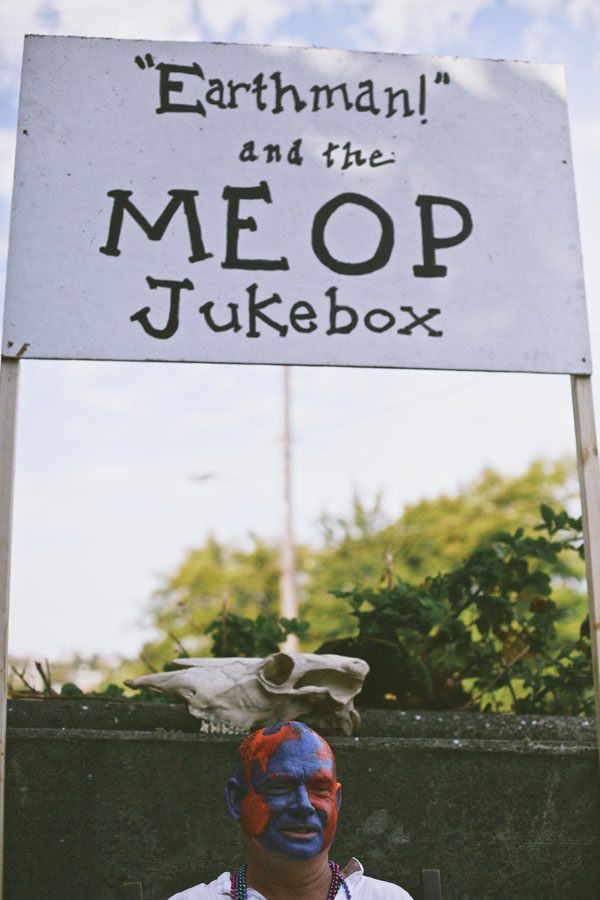 "Earthman!"
and the
MEOP
Jukebox